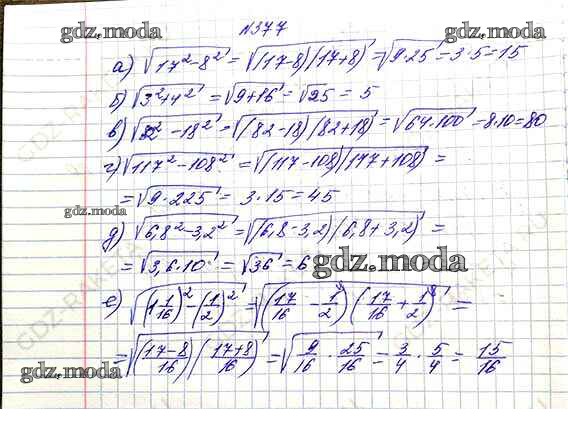 №377
gdz.moda gdz.moda
а) √(17² - 8²) = √((17-8)(17+8)) = √(9·25) = 3·5 = 15
б) √(3²+4²) = √(9+16) = √25 = 5
в) √(82² - 18²) = √((82-18)(82+18)) = √(64·100) = 8·10 = 80
г) √(117² - 108²) = √((117-108)(117+108)) =
= √(9·225) = 3·15 = 45
gdz.moda
д) √(6,8² - 3,2²) = √((6,8-3,2)(6,8+3,2)) =
= √(3,6·10) = √36 = 6
gdz.moda
е) √((1 1/16)² - (1/2)²) = √((17/16 - 1/2)(17/16 + 1/2)) =
= √((17-8/16)(17+8/16)) = √(9/16 · 25/16) = 3/4 · 5/4 = 15/16
gdz.moda
GDZ-RAKETA